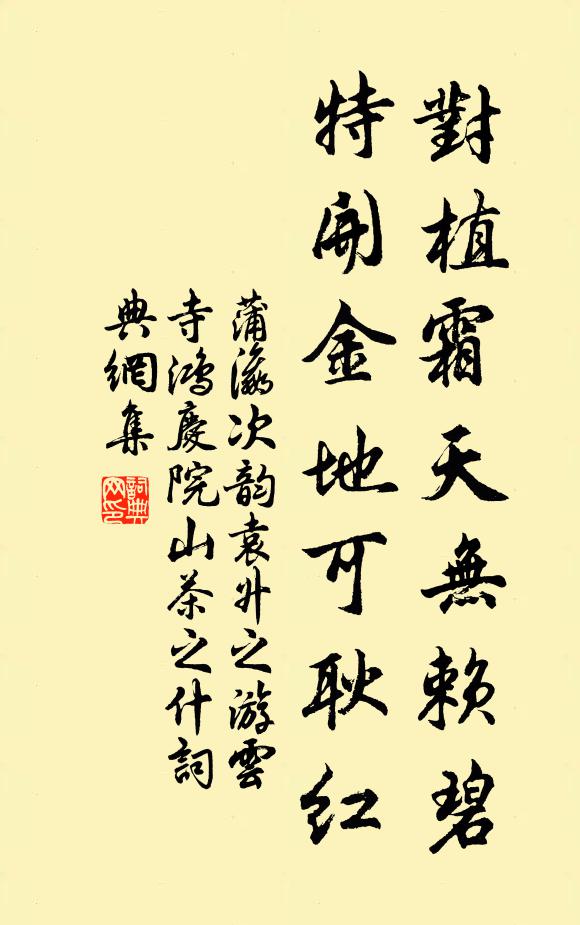 對植霜天無賴碧
特開金地可耿紅
蒲瀛次韵袁升之游雲
寺鴻慶院山茶之什詞
典網集
詞典網印